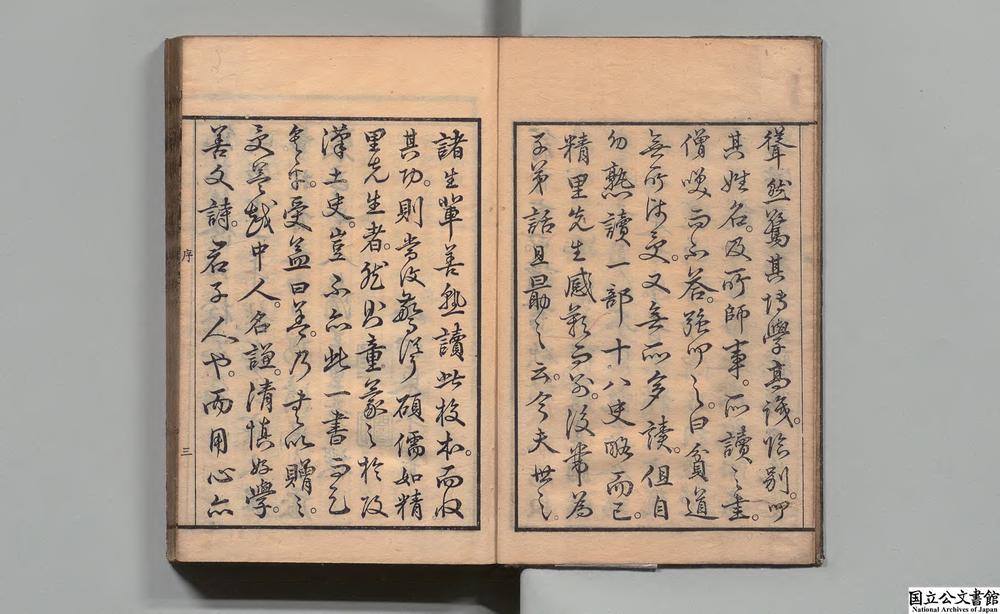 聳然驚其博學高識。臨別。叩
其姓名。及所師事。所讀之書。
僧咲而不答。強叩之。曰貧道
無所師受。又無所多讀。但自
幼熟讀一部十八史略而已。
精里先生感歎而別。後常為
子弟話且勗之云。今夫世之
諸生輩善熟讀此校本。而收
其功。則當復驚得碩儒如精
里先生者。然則童蒙之於攻
漢土史。豈不亦此一書而已
矣乎。受益曰善。乃書以贈之。
受益越中人。名謙。清慎好學。
善文詩。君子人也。而用心亦
序 三
国立公文書館
National Archives of Japan